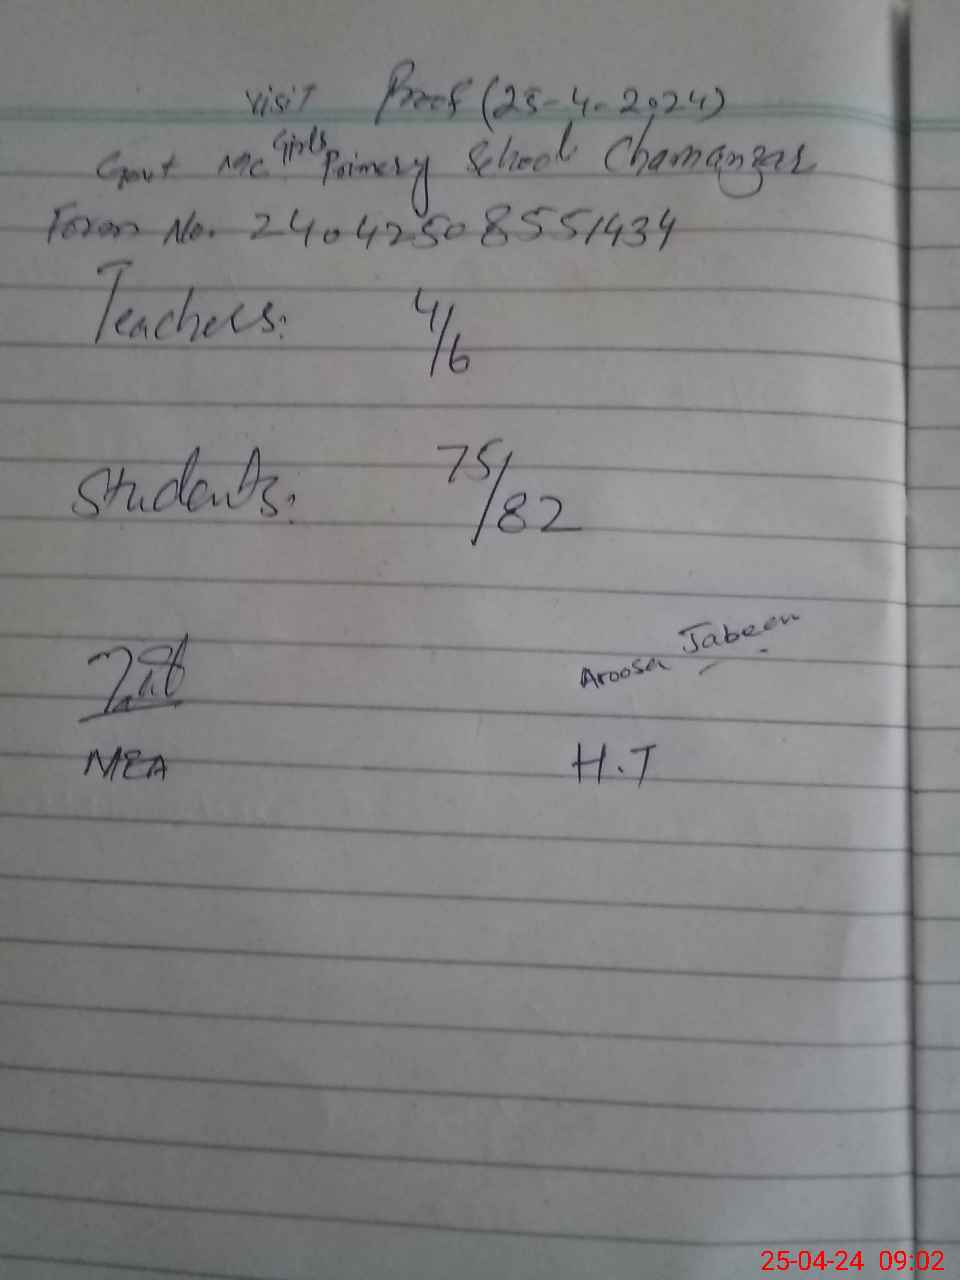 Visit Proof (25-4-2024)
Govt MC Girls Primary School Chamanzar
Form No. 24042508551434
Teachers: 4/6
Students: 75/82
Aroosa Jabeen
MEA H.T
25-04-24 09:02